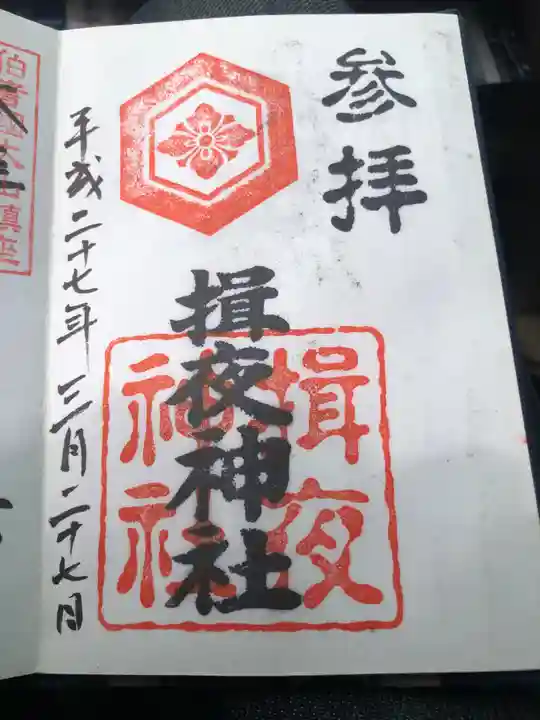 参拝
揖夜神社
揖夜
神社
平成二十七年三月二十七日